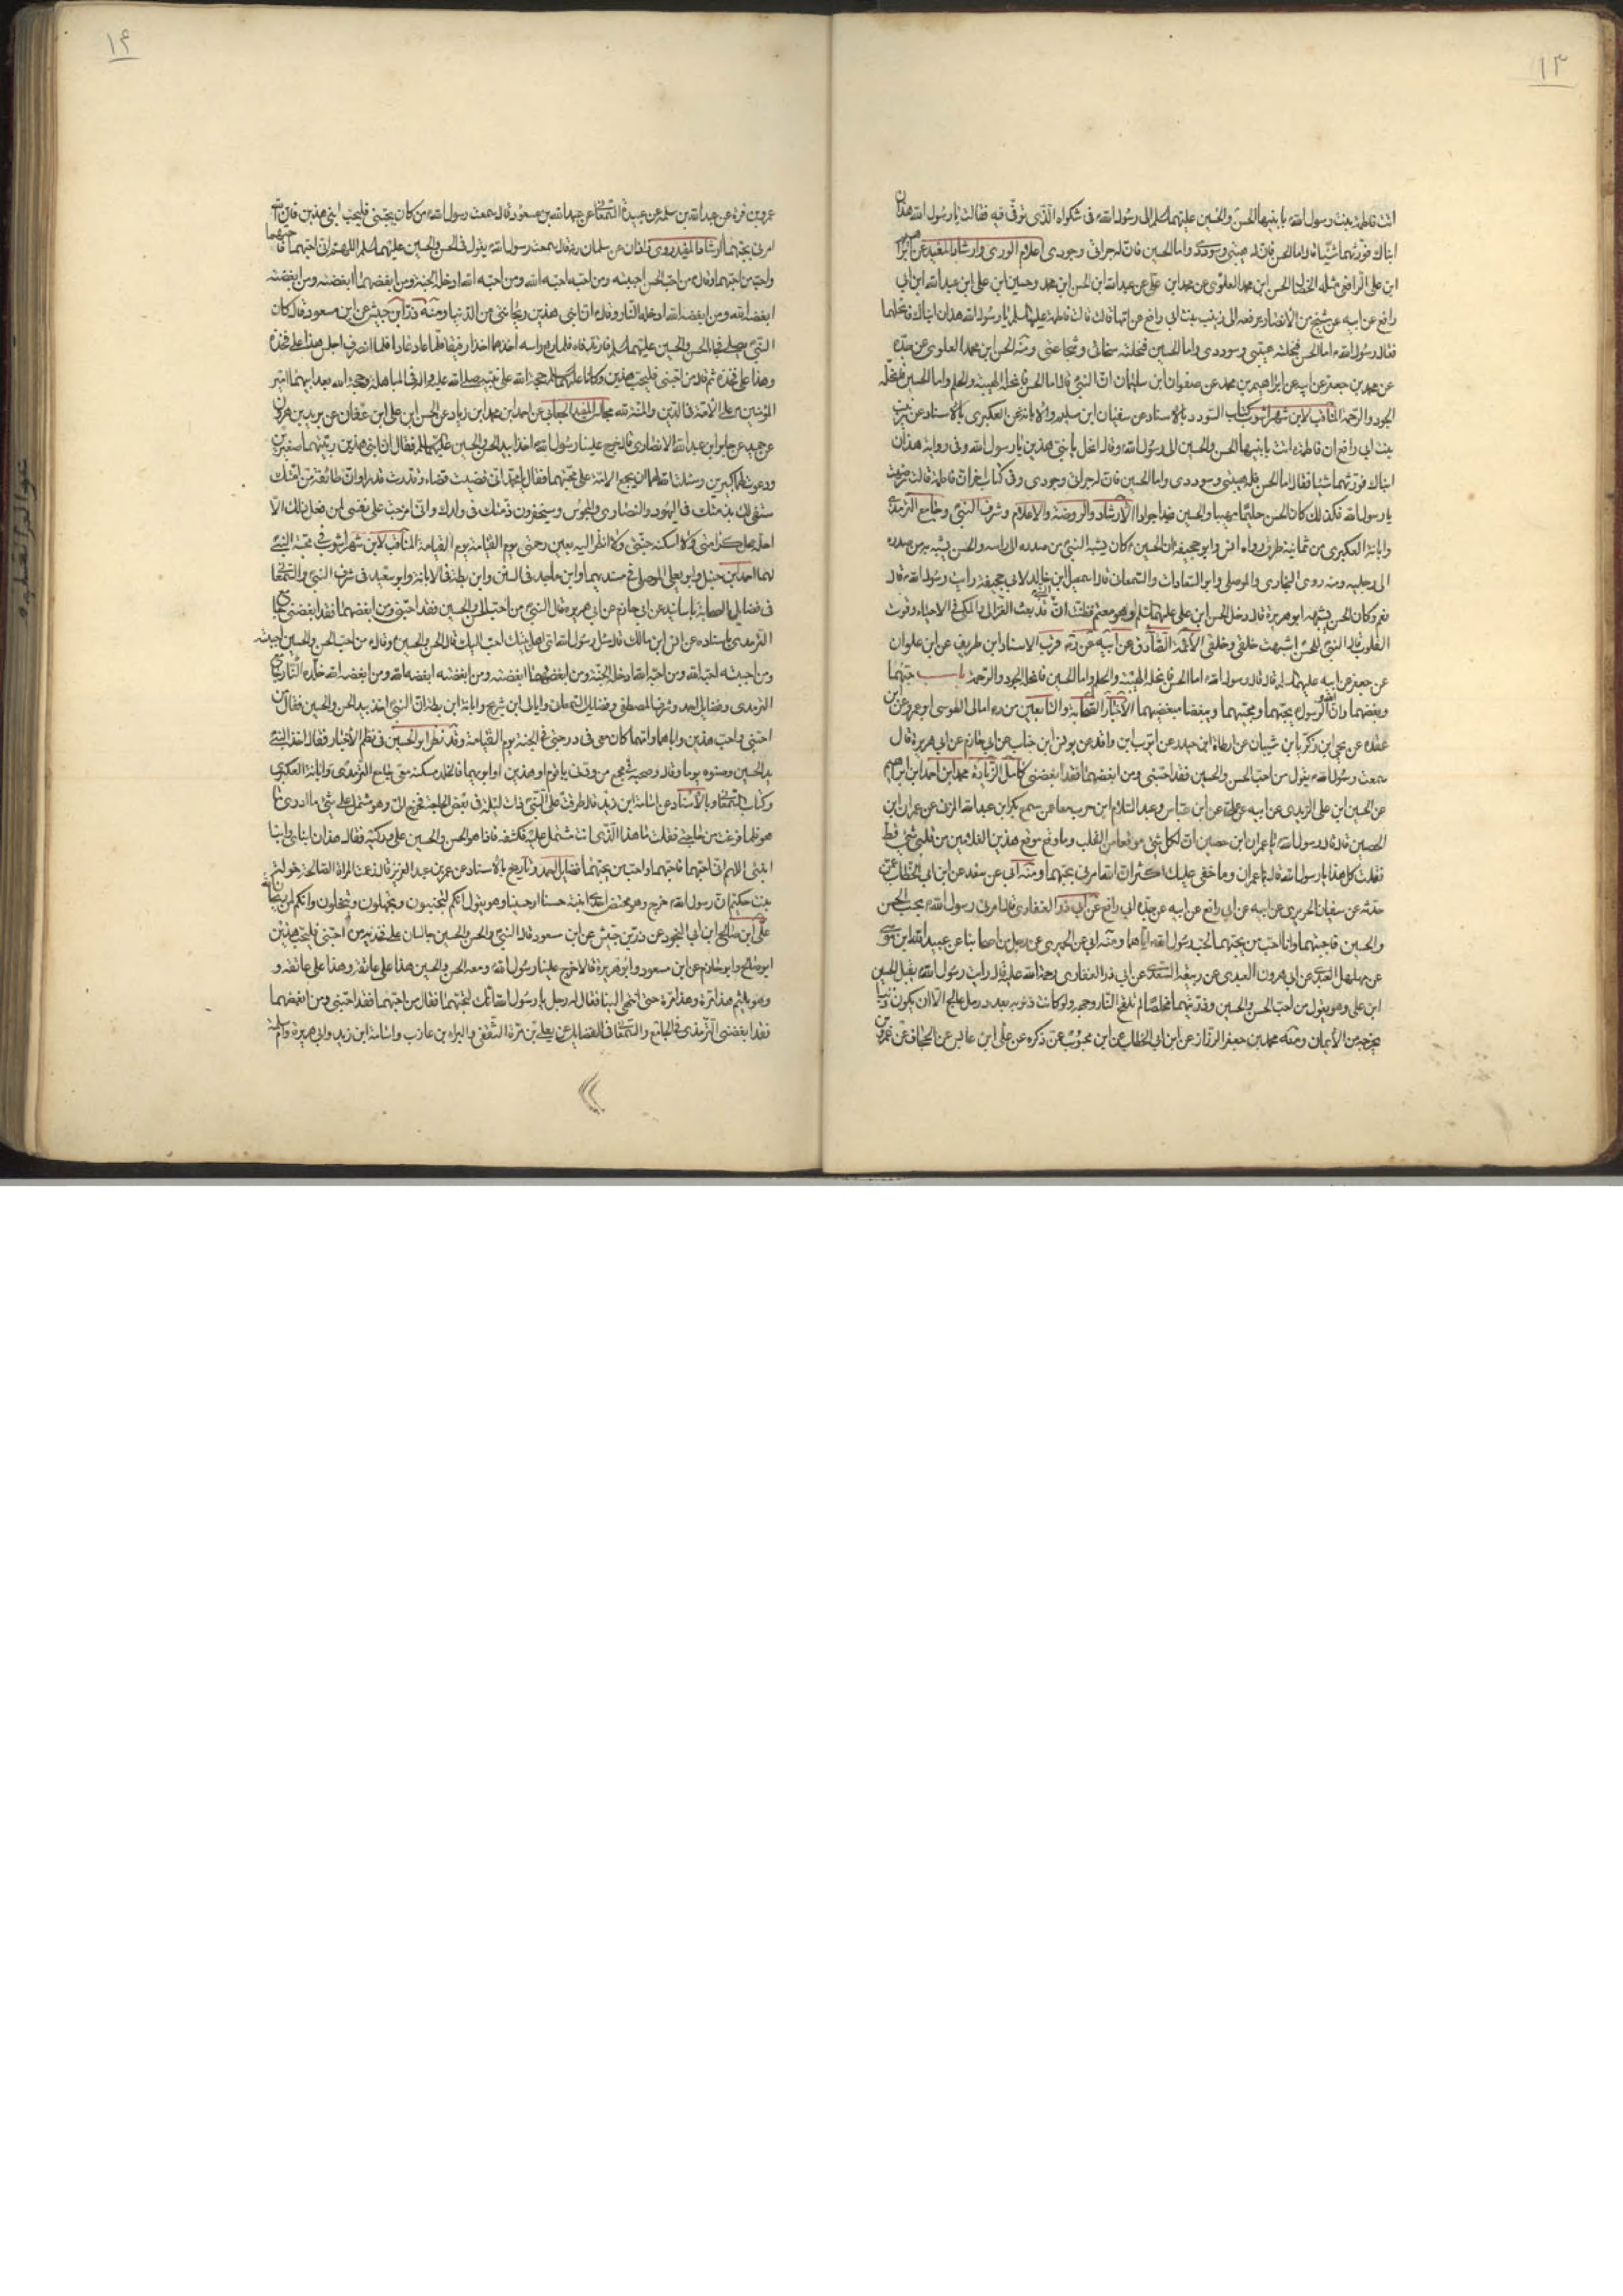 ١٣
اتت فاطمة بنت رسول الله بابنيها الحسن والحسين عليهما السلم الى رسول الله في شكواه الذي توفي فيه فقالت يا رسول الله هذان
ابناك فورثهما شيئا قال اما الحسن فان له هيبتي وسوددي واما الحسين فان له جرأتي وجودي اعلام الورى وارشاد المفيد عن ابراهيم
ابن علي الرافعي مثله الخصال الحسن ابن محمد العلوي عن
رافع عن ابيه عن شيخ من الانصار يرفعه الى زينب بنت ابي رافع عن امها قالت قالت فاطمة عليها السلم يا رسول الله هذان ابناك فانحلهما
فقال رسول الله اما الحسن فنحلته هيبتي وسوددي واما الحسين فنحلته سخائي وشجاعتي ومنه الحسن ابن محمد العلوي عن جده
عن محمد بن جعفر عن ابيه عن ابراهيم بن محمد عن صفوان ابن سليمان ان النبي قال اما الحسن فانحله الهيبة والحلم واما الحسين فانحله
الجود والرحمة المناقب لابن شهراشوب كتاب السودد بالاسناد عن سفيان ابن سليم والابانة عن العكبري بالاسناد عن زينب
بنت ابي رافع ان فاطمة اتت بابنيها الحسن والحسين الى رسول الله وقالت انحل يا ابني هذين يا رسول الله وفي رواية هذان
ابناك فورثهما شيئا فقال اما الحسن فله هيبتي وسوددي واما الحسين فان له جرأتي وجودي وفي كتاب اخر ان فاطمة قالت رضيت
يا رسول الله فكذلك كان الحسن حليما مهيبا والحسين نجدا جوادا الارشاد والروضة والاعلام وشرف النبي وجامع الترمذي
وابانة العكبري من ثمانية طرق رواه انس وابو جحيفة ان الحسين كان يشبه النبي من صدره الى راسه والحسن يشبه به من صدره
الى رجليه ومنه روى البخاري والموصلي وابو السعادات والسمعاني قال اسمعيل ابن خالد لابي جحيفة رايت رسول الله قال
نعم وكان الحسن يشبهه ابو هريرة قال دخل الحسن ابن علي عليهما السلم وهو معتم فظننت ان النبي قد بعث الغزالي والمكي في الاحياء وقوت
القلوب قال النبي للحسن اشبهت خلقي وخلقي الائمة الصادق عن ابيه قرب الاسناد ابن طريف عن ابن علوان
عن جعفر عن ابيه عليهما السلم قال قال رسول الله اما الحسن فانحله الهيبة والحلم واما الحسين فانحله الجود والرحمة باب حبهما
وبغضهما وان الرسول يحبهما ويحب محبهما ويبغض مبغضهما الاخبار الصحابة والتابعين من ده امالي الطوسي ابو عمرو عن ابن
عقده عن يحيى ابن زكريا بن شيبان عن ارطاة ابن حبيب عن ايوب ابن واقد عن يونس ابن خباب عن ابي حازم عن ابي هريرة قال
سمعت رسول الله يقول من احب الحسن والحسين فقد احبني ومن ابغضهما فقد ابغضني كامل الزيارة محمد ابن احمد ابن ابراهيم
عن الحسين ابن علي الزيدي عن ابيه عن علي عن ابن عباس وعبد السلام ابن حرب معا عن سمع بكر ابن عبد الله المزني عن عمران ابن
الحصين قال قال رسول الله يا عمران ابن حصين ان لكل شئ موقعا من القلب وما وقع موقع هذين الغلامين من قلبي شئ قط
فقلت كل هذا يا رسول الله قال يا عمران وما خفي عليك اكثر ان الله امرني بحبهما ومنه ابي عن سعد عن ابن ابي الخطاب عمن
حدثه عن سفيان الجريري عن ابيه عن ابي رافع عن ابيه عن جده ابي رافع عن ابي ذر الغفاري قال امرني رسول الله بحب الحسن
والحسين فاحبهما وانا احب من يحبهما لحب رسول الله اياهما ومنه ابي عن الحميري عن رجل من اصحابنا عن عبيد الله ابن موسى
عن مهلهل العبدي عن ابي هرون العبدي عن ربيعة السعدي عن ابي ذر الغفاري رحمة الله عليه قال رايت رسول الله يقبل الحسين
ابن علي وهو يقول من احب الحسن والحسين وذريتهما مخلصا لم تلفح النار وجهه ولو كانت ذنوبه بعدد رمل عالج الا ان يكون ذنبا
يخرجه من الايمان ومنه محمد بن جعفر الرزاز عن ابن ابي الخطاب عن ابن محبوب عن ذكره عن علي ابن عابس عن الحجاف عن عمرو بن
١٤
عمرو بن مرة عن عبد الله بن سلمة عن عبيدة السلماني عن عبد الله بن مسعود قال سمعت رسول الله من كان يحبني فليحب ابني هذين فان الله
امرني بحبهما ارشاد المفيد روى زاذان عن سلمان رض قال سمعت رسول الله يقول في الحسن والحسين عليهما السلم اللهم اني احبهما فاحبهما
واحب من احبهما وقال من احب الحسن احببته ومن احببته احبه الله ومن احبه الله ادخله الجنة ومن ابغضهما ابغضته ومن ابغضته
ابغضه الله ومن ابغضه الله ادخله النار وقال ان ابني هذين ريحانتي من الدنيا ومنه زر ابن حبيش عن ابن مسعود قال كان
النبي يصلي فجاء الحسن والحسين عليهما السلم فارتدفاه فلما رفع راسه اخذهما اخذا رفيقا فلما عاد عادا فلما انصرف اجلس هذا على فخذه
وهذا على فخذه ثم قال من احبني فليحب هذين وكانا عليهما السلم حجة الله على نبيه صلى الله عليه واله في المباهلة وحجة الله بعد ابيهما امير
المؤمنين على الامة في الدين والمنة لله مجالس المفيد الجعابي عن احمد ابن محمد ابن زياد عن الحسن ابن علي ابن عفان عن بريد بن هرون
عن حميد عن جابر ابن عبد الله الانصاري قال خرج علينا رسول الله اخذا بيد الحسن والحسين عليهما السلم فقال ان ابني هذين ربيتهما صغيرين
ودعوت لهما كبيرين وسئلت الله لهما ان يجمع الامة على محبتهما فقال يا محمد اني قضيت قضاء وقدرت قدرا وان طائفة من امتك
ستفي لك بذمتك في اليهود والنصارى والمجوس وسيخفرون ذمتك في ولدك واني اوجبت على نفسي لمن فعل ذلك الا
احله محل كرامتي ولا اسكنه جنتي ولا انظر اليه بعين رحمتي يوم القيامة يوم القيامة المناقب لابن شهراشوب في محبة النبي
لهما احمد ابن حنبل وابو يعلى الموصلي في مسنديهما وابن ماجه في السنن وابن بطة في الابانة وابو سعيد في شرف النبي والسمعاني
في فضايل الصحابة باسانيد عن ابي حازم عن ابي هريرة قال النبي من احب الحسن والحسين فقد احبني ومن ابغضهما فقد ابغضني جامع
الترمذي باسناده عن انس ابن مالك قال سئل رسول الله اي اهل بيتك احب اليك قال الحسن والحسين وقال من احب الحسن والحسين احببته
ومن احببته احبه الله ومن احبه الله ادخله الجنة ومن ابغضهما ابغضته ومن ابغضته ابغضه الله ومن ابغضه الله خلده النار جامع
الترمذي وفضايل احمد وشرف المصطفى وفضايل السمعاني وامالي ابن شريح وابانة ابن بطة ان النبي اخذ بيد الحسن والحسين فقال من
احبني واحب هذين واباهما وامهما كان معي في درجتي في الجنة يوم القيامة وقد نظم ابو الحسين في نظم الاخبار فقال اخذ النبي
يد الحسين وصنوه يوما وقال وصحبه في مجمع من ودني يا قوم او هذين او ابويهما فالخلد مسكنه معي جامع الترمذي وابانة العكبري
وكتاب السمعاني وبالاسناد عن اسامة ابن زيد قال طرقت على النبي ذات ليلة في بعض الحاجة فخرج الي وهو مشتمل على شئ ما ادري ما
هو فلما فرغت من حاجتي فقلت ما هذا الذي انت مشتمل عليه فكشفه فاذا هو الحسن والحسين على وركيه فقال هذان ابناي وابنا
ابنتي اللهم اني احبهما فاحبهما واحب من يحبهما فضايل احمد وتاريخ بالاسناد عن عمر بن عبد العزيز قال زعمت المراة الصالحة خولة
بنت حكيم ان رسول الله خرج وهو محتضن احد ابني ابنته حسنا او حسينا وهو يقول انكم لتجبنون وتجهلون وتبخلون وانكم لمن ريحان
علي ابن صالح ابن ابي النجود عن زر بن حبيش عن ابن مسعود قال النبي والحسن والحسين جالسان على فخذيه من احبني فليحب هذين
ابو صالح وابو حازم عن ابن مسعود وابو هريرة قالا خرج علينا رسول الله ومعه الحسن والحسين هذا على عاتقه وهذا على عاتقه و
وهو يلثم هذا مرة وهذا مرة حتى انتهى الينا فقال له رجل يا رسول الله انك لتحبهما فقال من احبهما فقد احبني ومن ابغضهما
فقد ابغضني الترمذي في الجامع والسمعاني في الفضايل عن يعلى بن مرة الثقفي والبراء بن عازب واسامة ابن زيد وابي هريرة وام سلمة